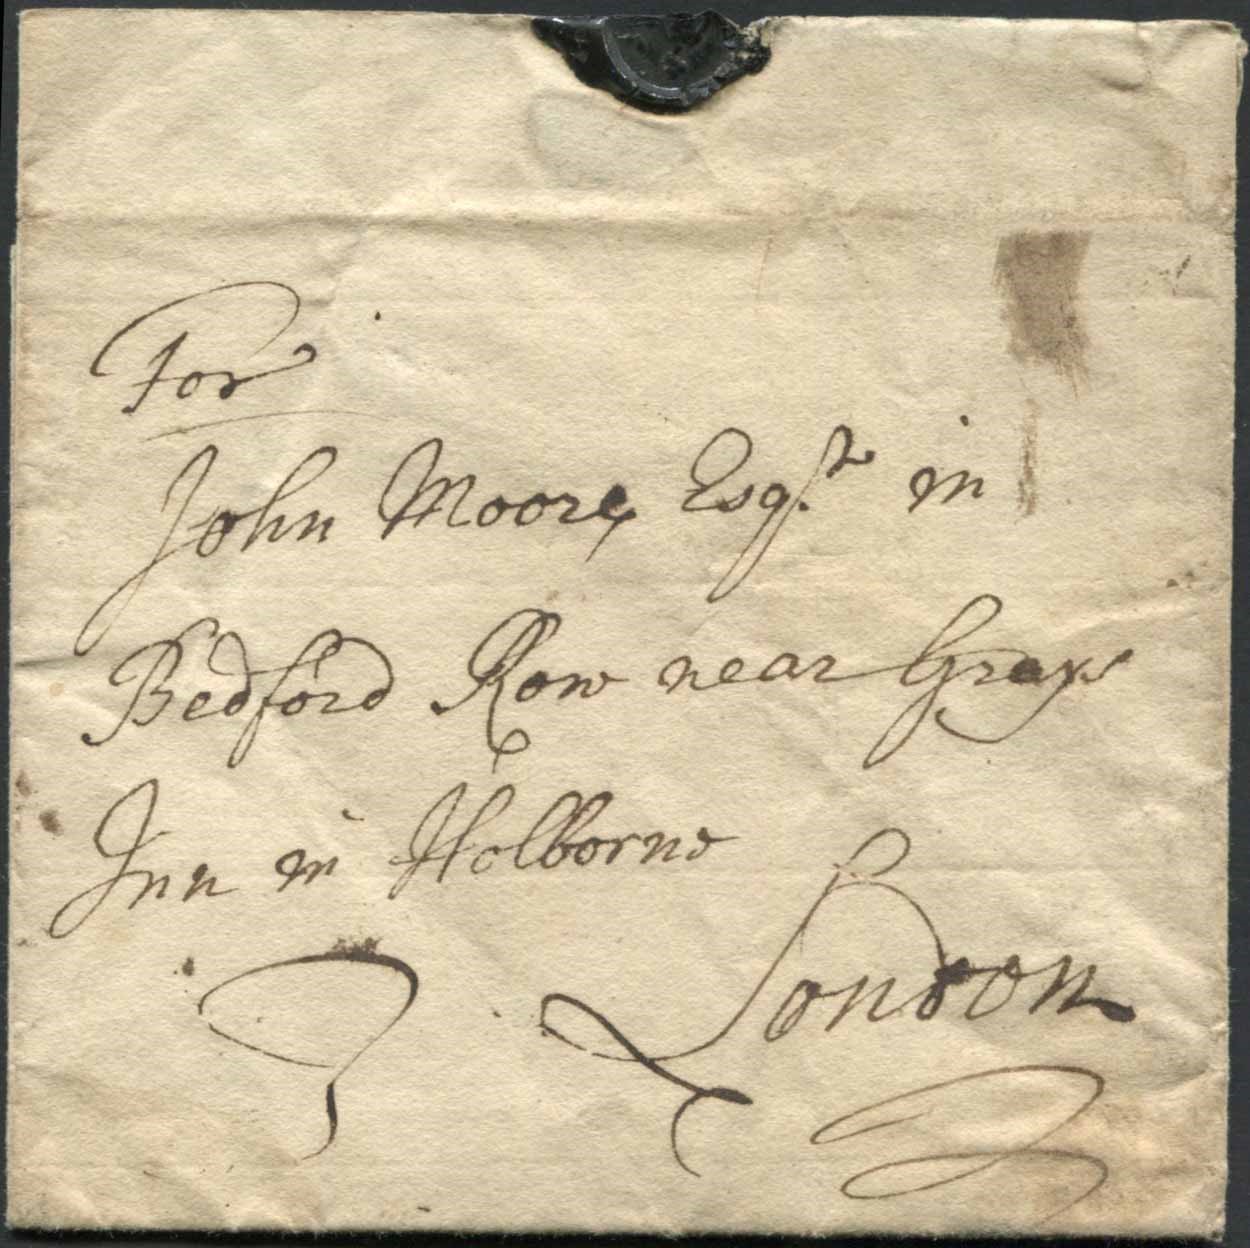 For
John Moore Esqr. in
Bedford Row near Grays
Inn in Holborne
London